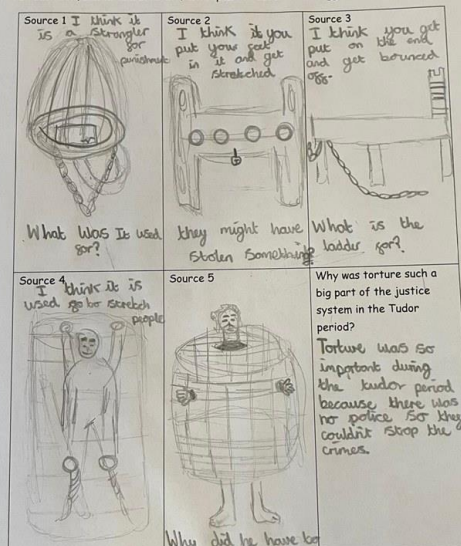 Source 1 I think it
is a strangler
for
punishment
What was It used
for?
Source 2
I think it you
put your feet
in it and get
stretched
they might have
stolen something
Source 3
I think you get
put on the end
and get bounced
off.
What is the
ladder for?
Source 4
I think it is
used go to stretch
people
Source 5
Why did he have to
Why was torture such a
big part of the justice
system in the Tudor
period?
Torture was so
important during
the tudor period
because there was
no police so they
couldn't stop the
crimes.